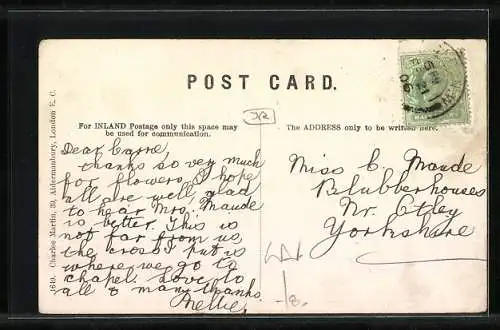 POST CARD.
For INLAND Postage only this space may
be used for communication.
The ADDRESS only to be written here.
1649. Charles Martin, 39, Aldermanbury, London E. C.
Dear Carrie,
thanks so very much
for flowers, I hope
all are well, glad
to hear Mrs. Maude
is better. This is
not far from us
the cross x put is
where we go to
chapel. Love to
all & many thanks
Nellie.
Miss C Maude
Blubberhouses
Nr. Otley
Yorkshire